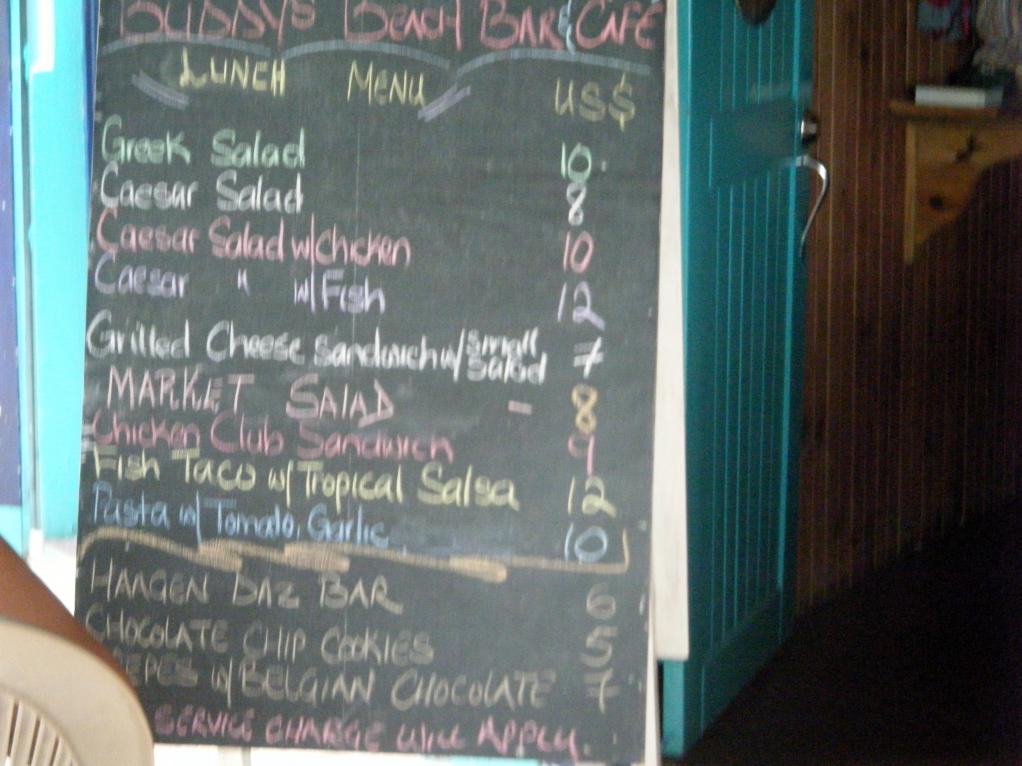 BUDDYS BEACH BAR & CAFE
LUNCH MENU US$
Greek Salad 10
Caesar Salad 8
Caesar Salad w/Chicken 10
Caesar " w/Fish 12
Grilled Cheese Sandwich w/ Small Salad 7
MARKET SALAD - 8
Chicken Club Sandwich 9
Fish Taco w/ Tropical Salsa 12
Pasta w/ Tomato, Garlic 10
HAAGEN DAZ BAR 6
CHOCOLATE CHIP COOKIES 5
EPES w/ BELGIAN CHOCOLATE 7
SERVICE CHARGE WILL APPLY.